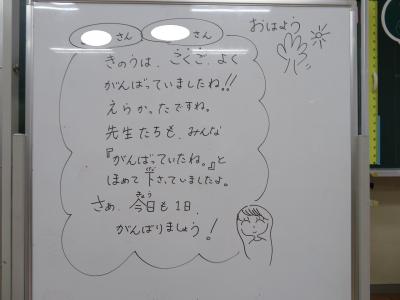 さん さん
おはよう
きのうは、こくご、よく
がんばっていましたね!!
えらかったですね。
先生たちも、みんな
『がんばっていたね。』と
ほめて下さっていましたよ。
さぁ、今日も1日、
がんばりましょう!